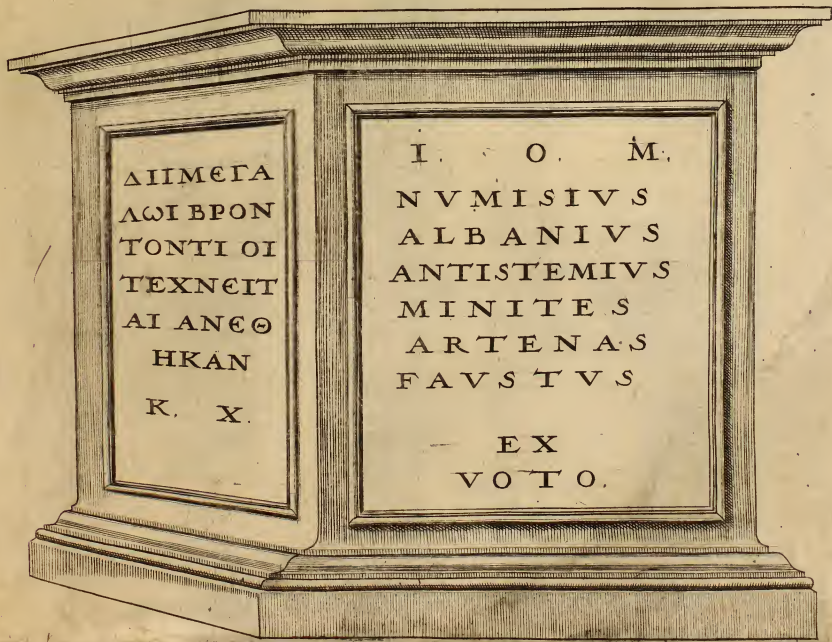 ΔΙΙΜЄΓΑ
ΛωΙ ΒΡΟΝ
ΤΟΝΤΙ ΟΙ
ΤΕΧΝЄΙΤ
ΑΙ ΑΝЄΘ
ΗΚΑΝ
Κ. Χ.
I. O. M.
NVMISIVS
ALBANIVS
ANTISTEMIVS
MINITES
ARTENAS
FAVSTVS
EX
VOTO.